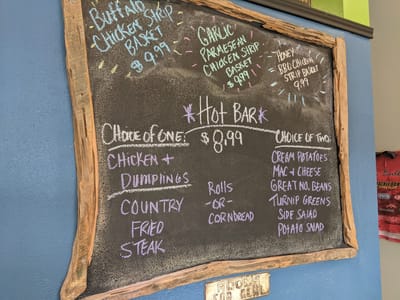 Buffalo
Chicken Strip
Basket
$9.99
Garlic
Parmesean
Chicken Strip
Basket
$9.99
Honey
BBQ Chicken
Strip Basket
9.99
*Hot Bar*
$8.99
Choice of One:
Chicken +
Dumplings
Country
Fried
Steak
Rolls
-or-
Cornbread
Choice of Two:
Cream Potatoes
Mac + Cheese
Great No. Beans
Turnip Greens
Side Salad
Potato Salad